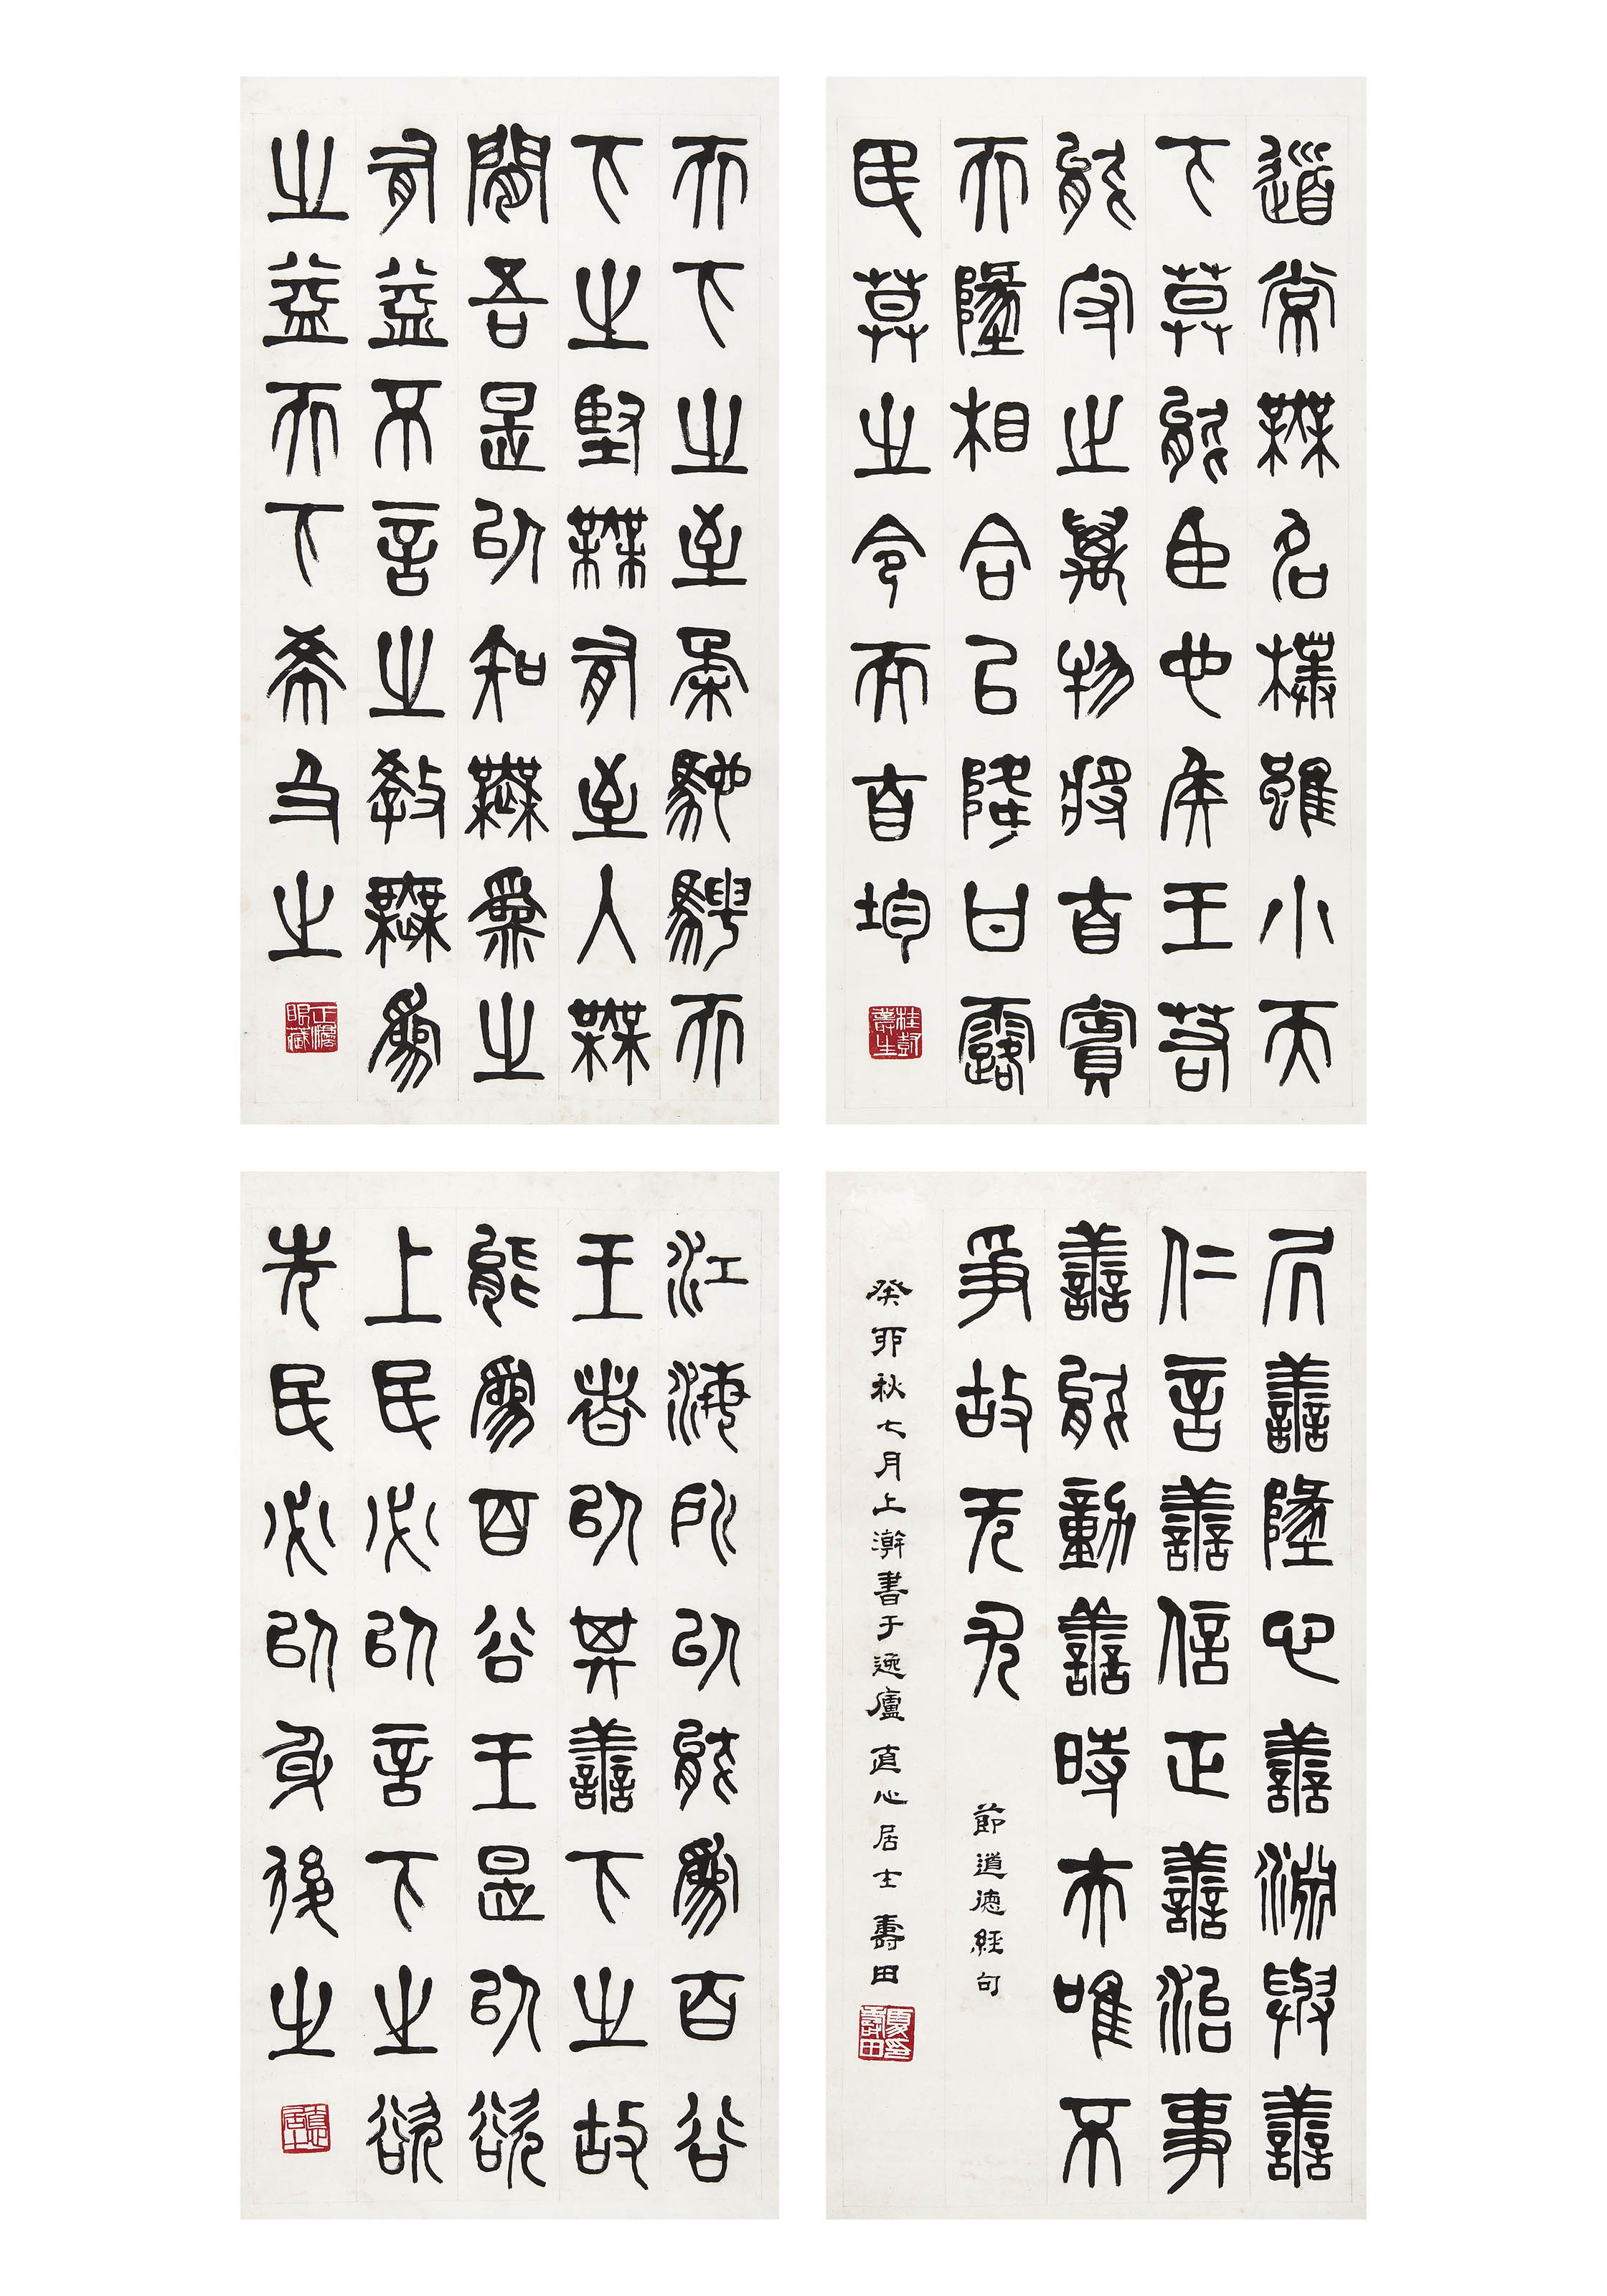 道常無名樸雖小天
下莫能臣也侯王若
能守之萬物將自賓
天墬相合以降甘露
民莫之令而自均
天下之至柔馳騁天
下之堅無有至入無
間吾是以知無為之
有益不言之教無為
之益天下希及之
正灋眼藏
江海所以能為百谷
王者以其善下之故
能為百谷王是以欲
上民必以言下之欲
先民必以身後之
直心居士
居善墬心善淵與善
仁言善信正善治事
善能動善時夫唯不
爭故无尤
節道德經句
癸卯秋七月上澣書于逸廬直心居士壽田
夏印壽田